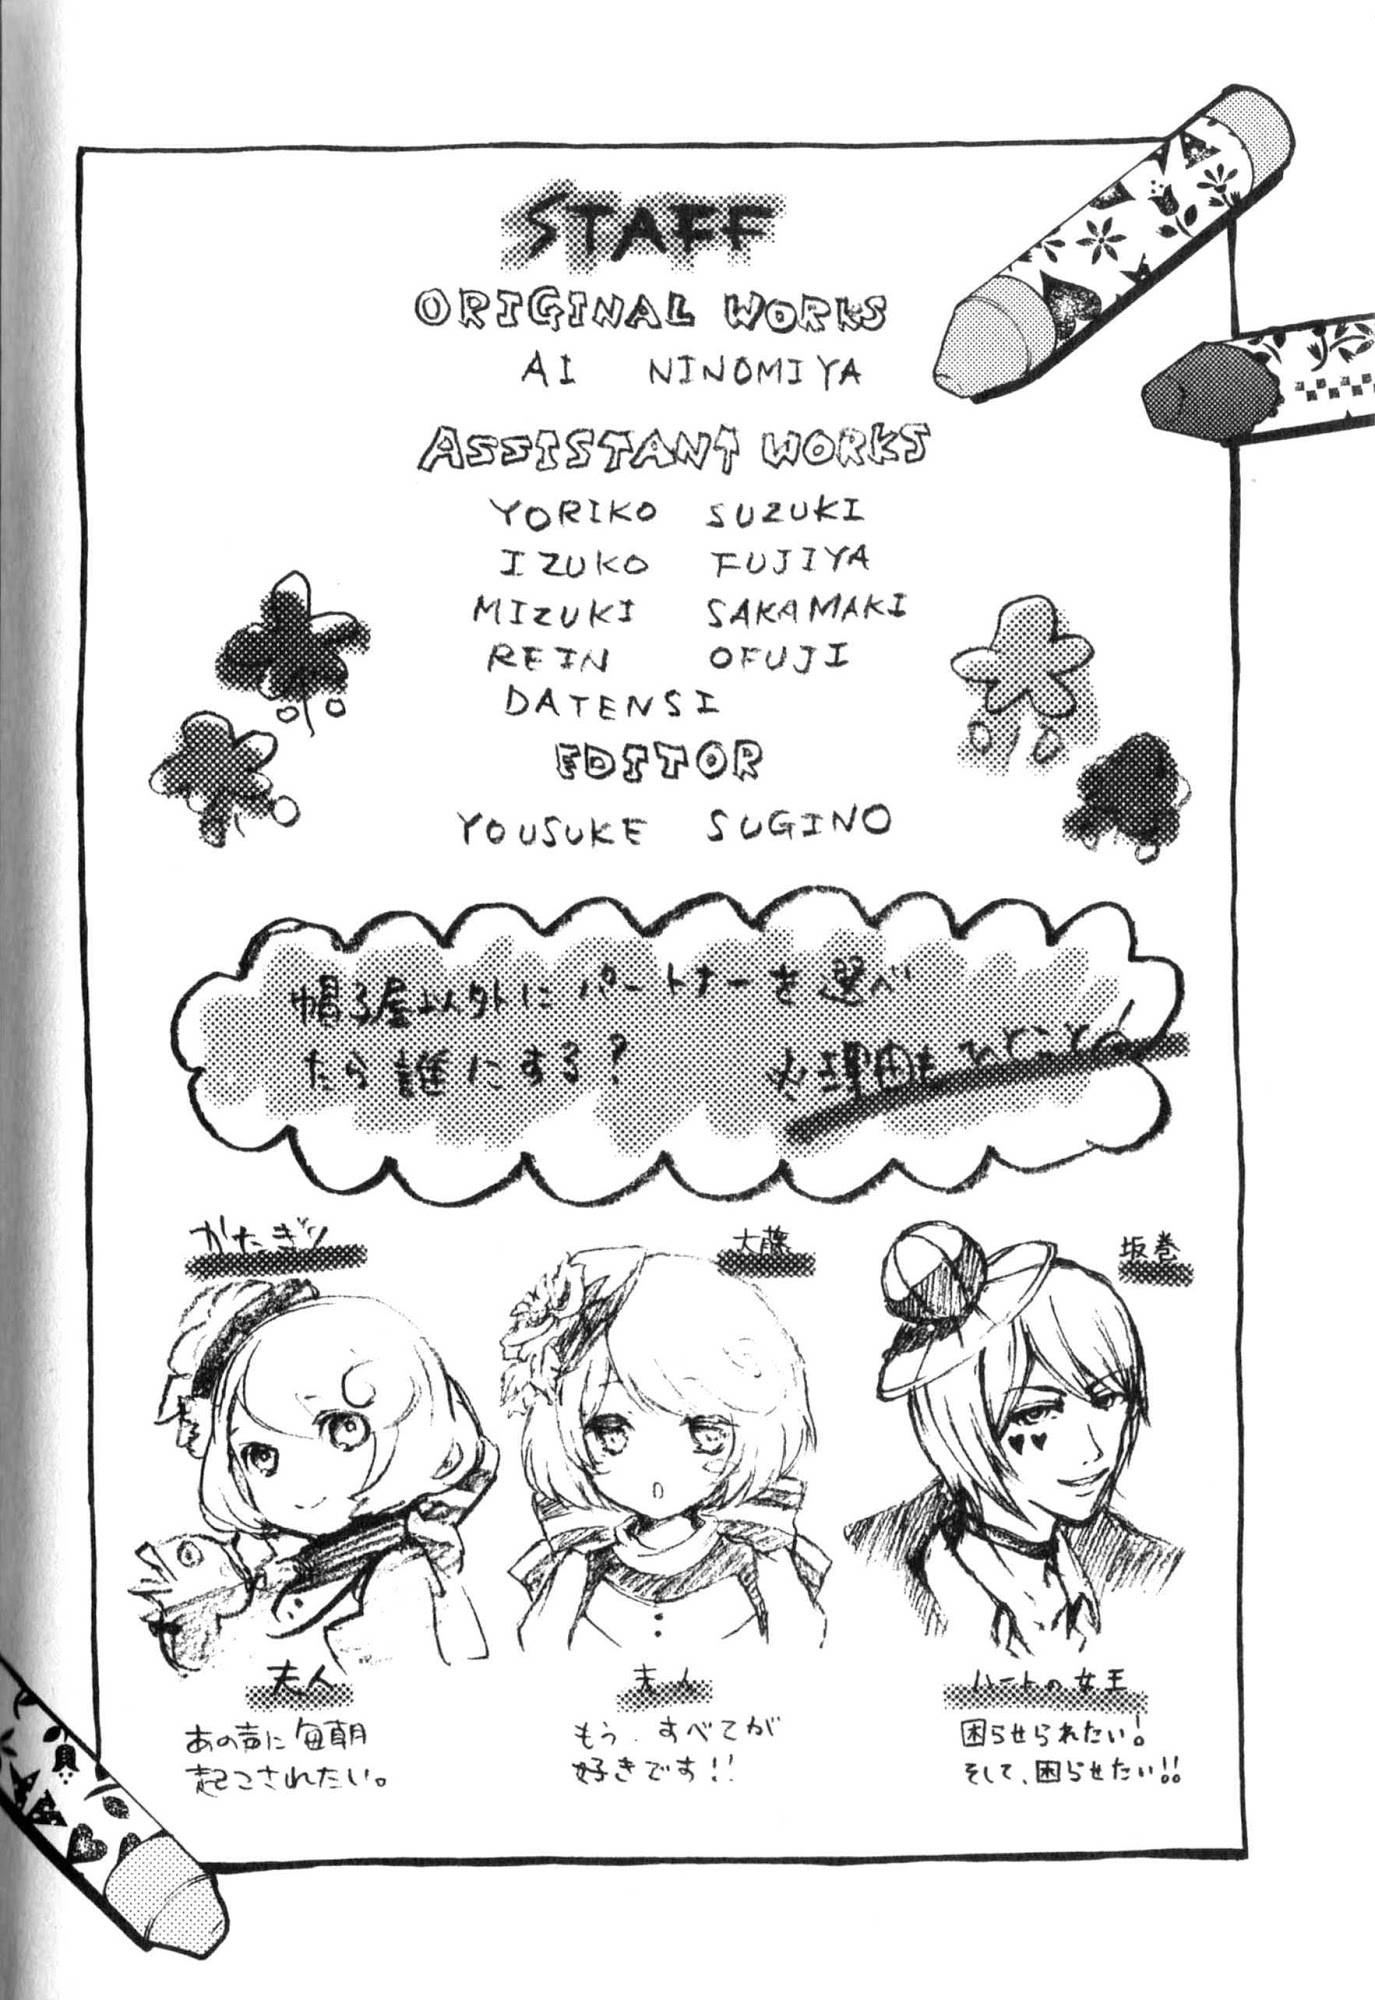 STAFF
ORIGINAL WORKS
AI NINOMIYA
ASSISTANT WORKS
YORIKO SUZUKI
IZUKO FUJIYA
MIZUKI SAKAMAKI
REIN OFUJI
DATENSI
EDITOR
YOUSUKE SUGINO
帽子屋以外にパートナーを選べ
たら誰にする?
※理由もひとことへ
かたぎり
大藤
坂巻
夫人
あの声に毎朝
起こされたい。
夫人
もう、すべてが
好きです!!
ハートの女王
困らせられたい!
そして、困らせたい!!